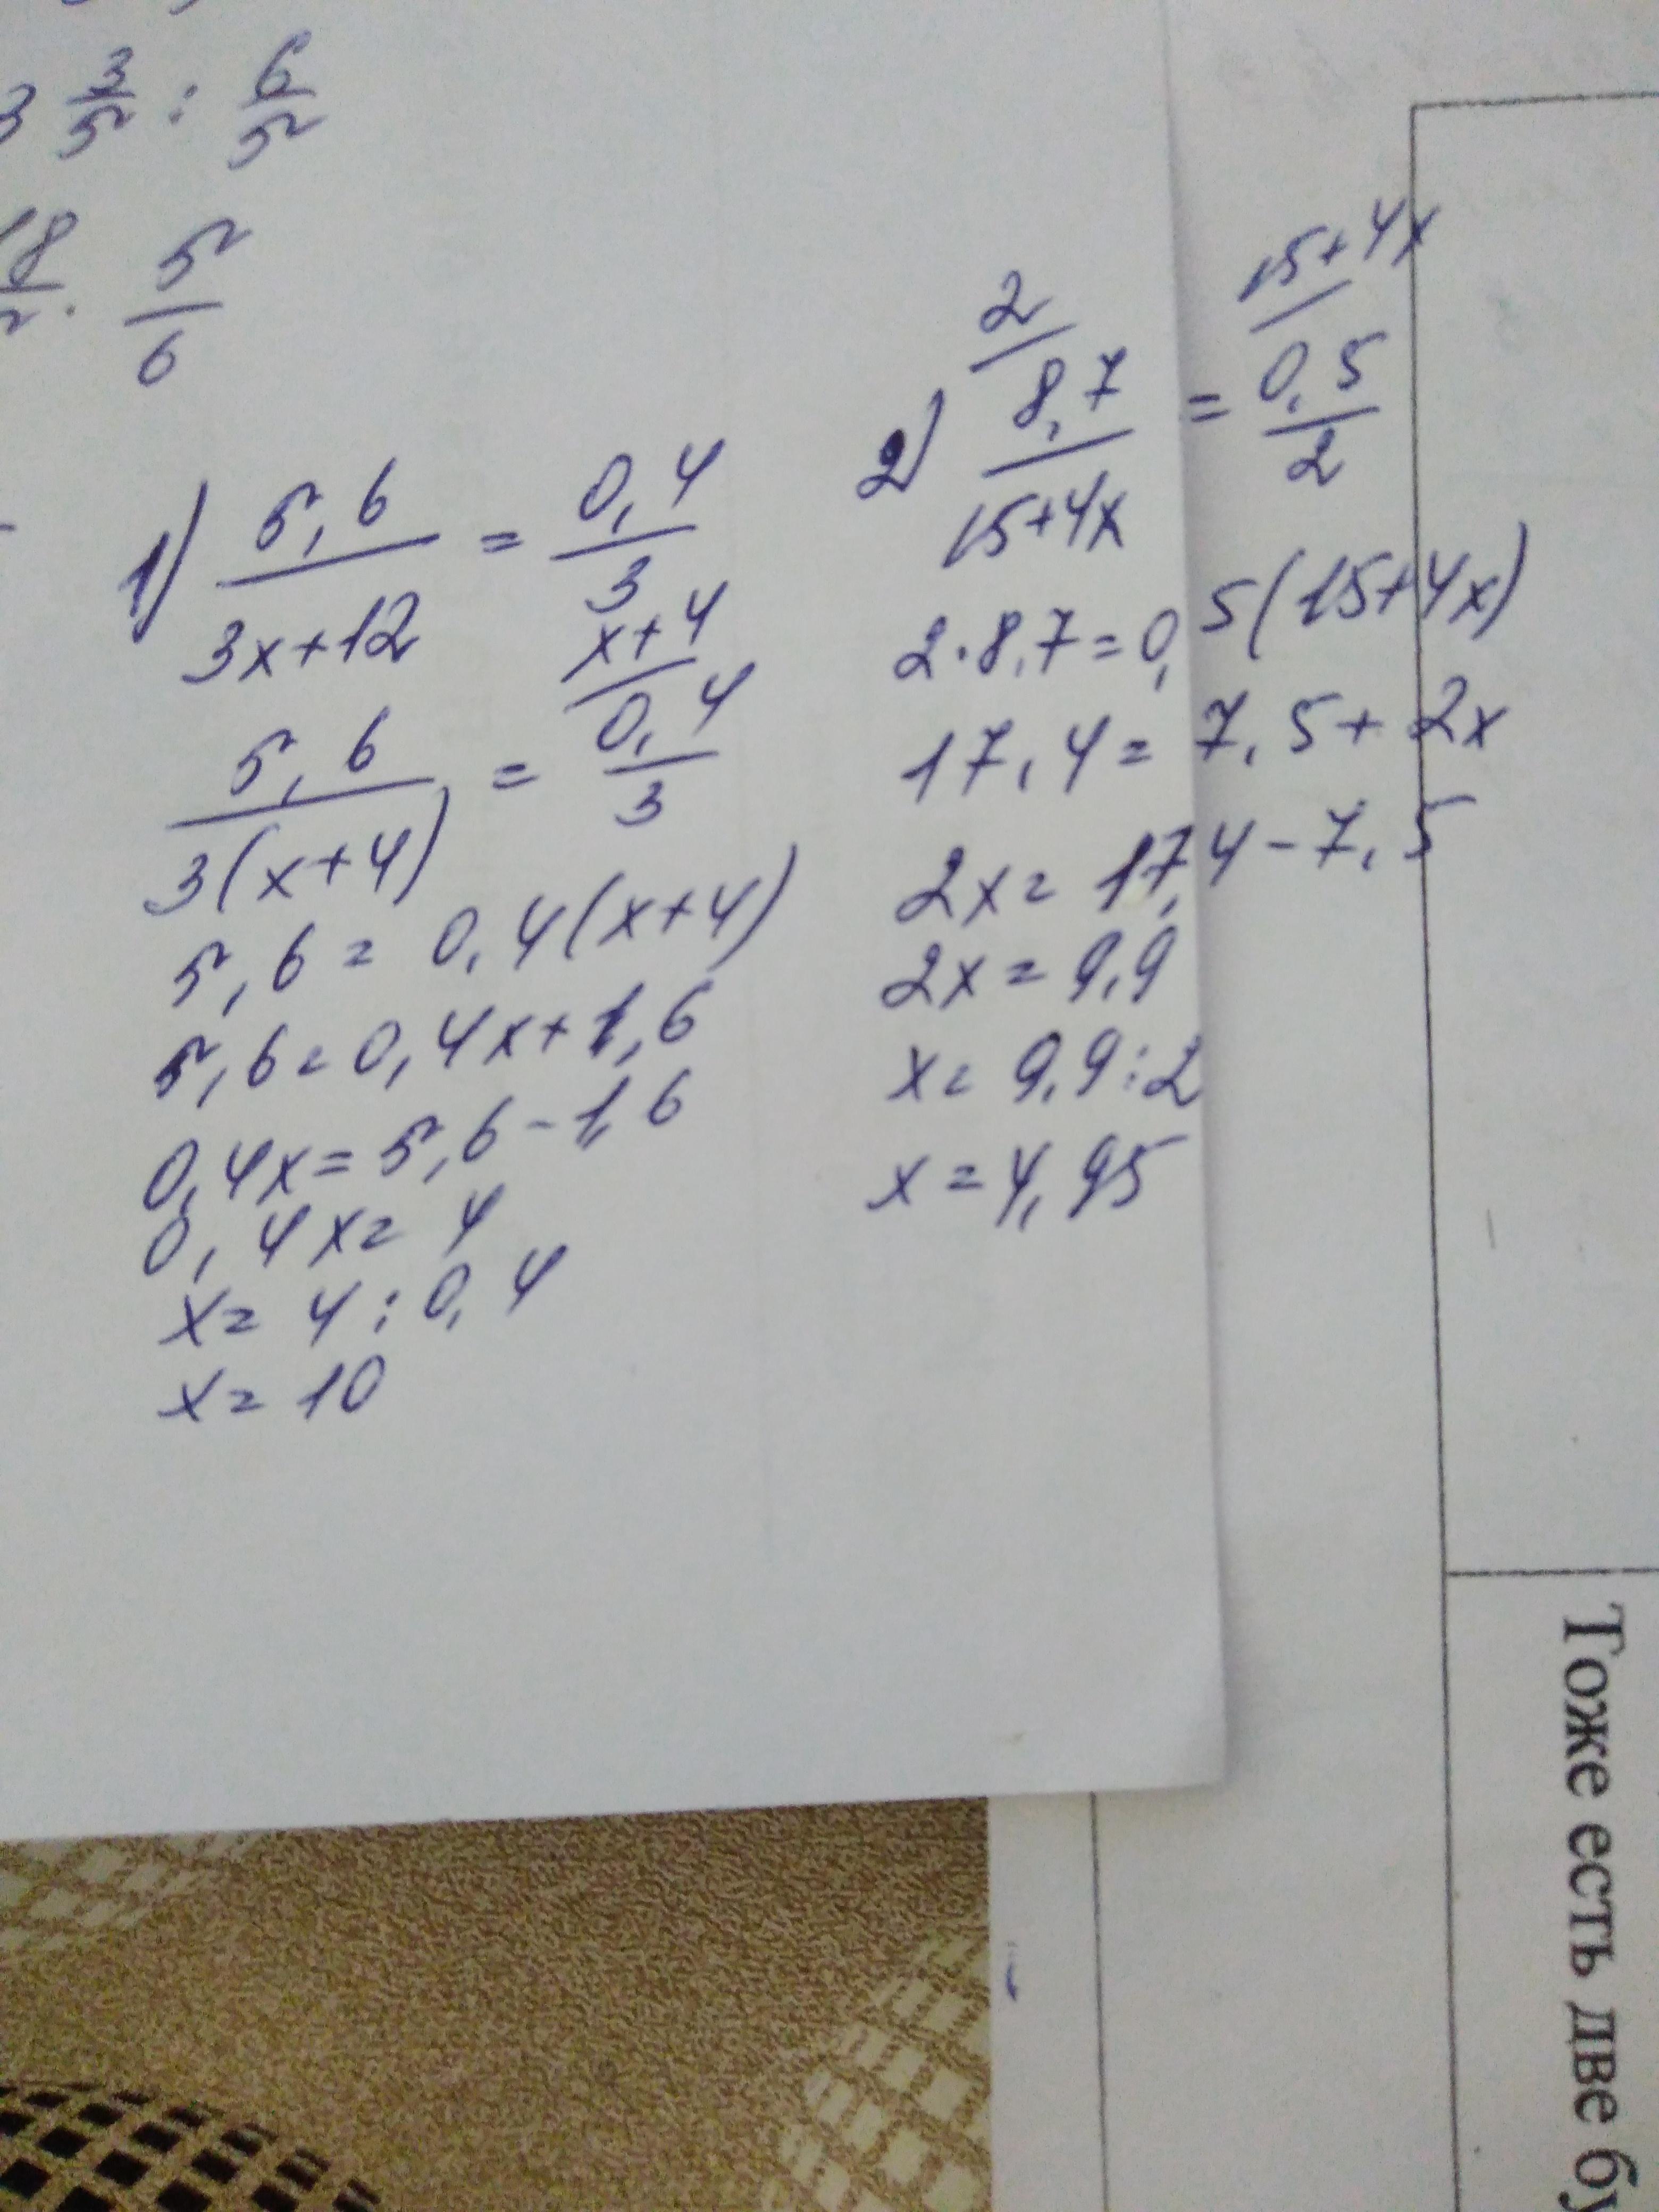 3 3/5 : 6/5
18/5 · 5/6
1) 5,6/(3x+12) = 0,4/3
5,6/(3(x+4)) (x+4)/ = 0,4/3
5,6 = 0,4(x+4)
5,6 = 0,4x+1,6
0,4x = 5,6-1,6
0,4x = 4
x = 4:0,4
x = 10
2) 2/ 8,7/(15+4x) = (15+4x)/ 0,5/2
2·8,7 = 0,5(15+4x)
17,4 = 7,5+2x
2x = 17,4-7,5
2x = 9,9
x = 9,9:2
x = 4,95
Тоже есть две